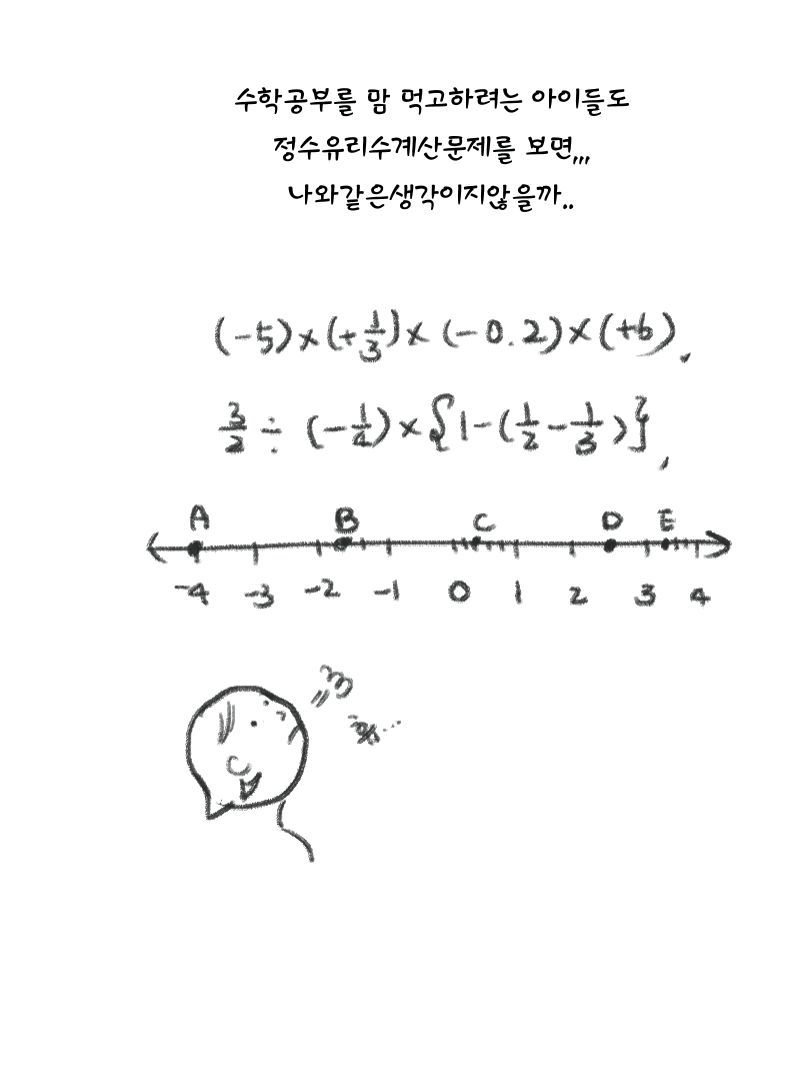 수학공부를 맘 먹고하려는 아이들도
정수유리수계산문제를 보면,,,
나와같은생각이지않을까..
(-5)×(+1/3)×(-0.2)×(+6),
3/2÷(-1/4)×{1-(1/2-1/3)},
A B C D E
-4 -3 -2 -1 0 1 2 3 4